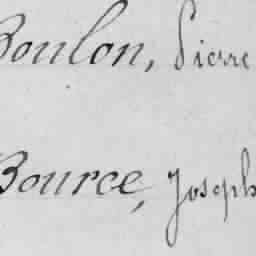 Boulon, Pierre
Bource, Joseph